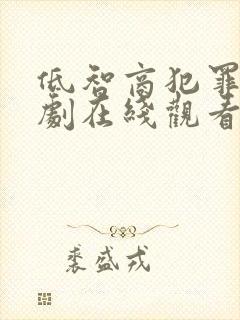 低智商犯罪
劇在綫觀看
裘盛戎